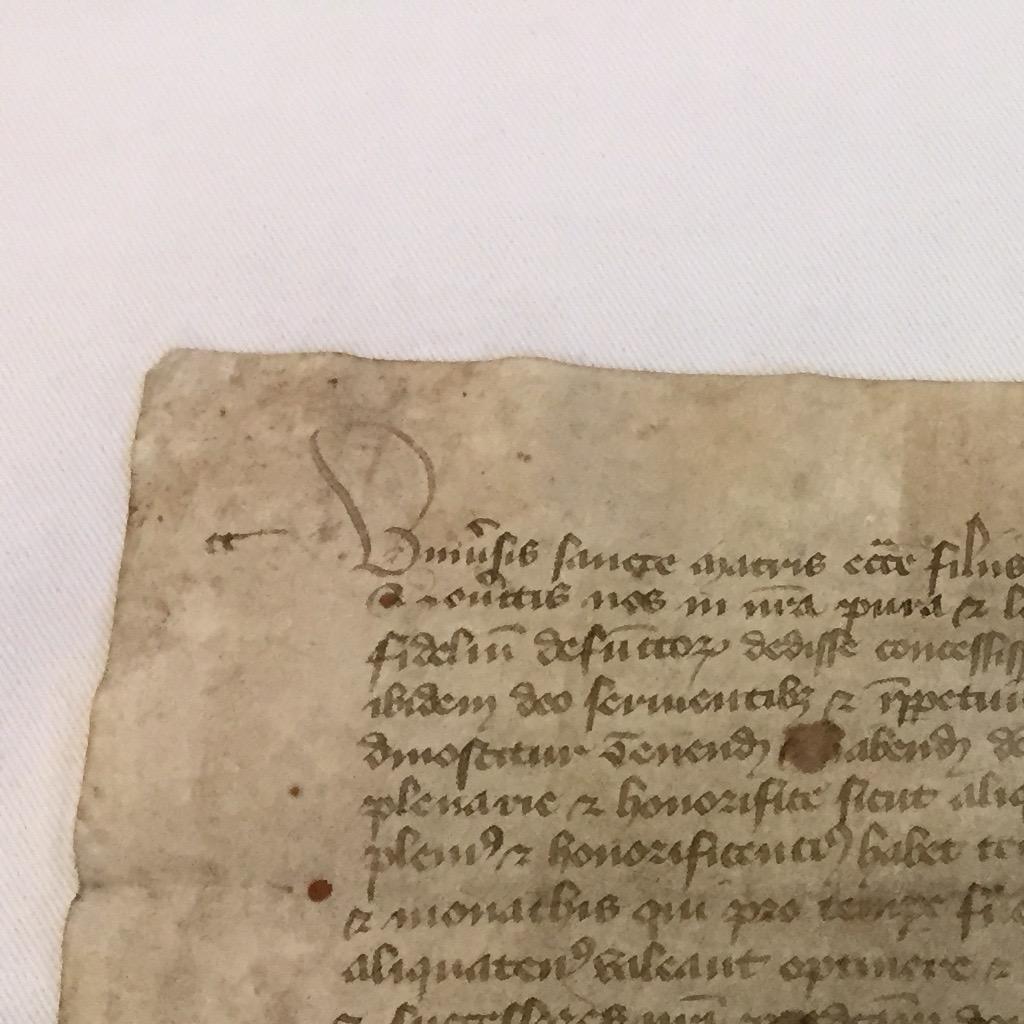 Univ̉sis sancte matris ecc̄e filiis
nos in nr̄a pura ⁊ l
fideliū defūctoꝝ dedisse concessiss
ibidem deo seruientibꝫ ⁊ īꝑpetuū
dinoscitur Tenend̄ abend̄
plenarie ⁊ honorifice sicut aliq
pleniꝰ ⁊ honorificenciꝰ habet
⁊ monachis qui pro tempe
aliquatenꝰ valeant optinere ⁊
⁊ successores